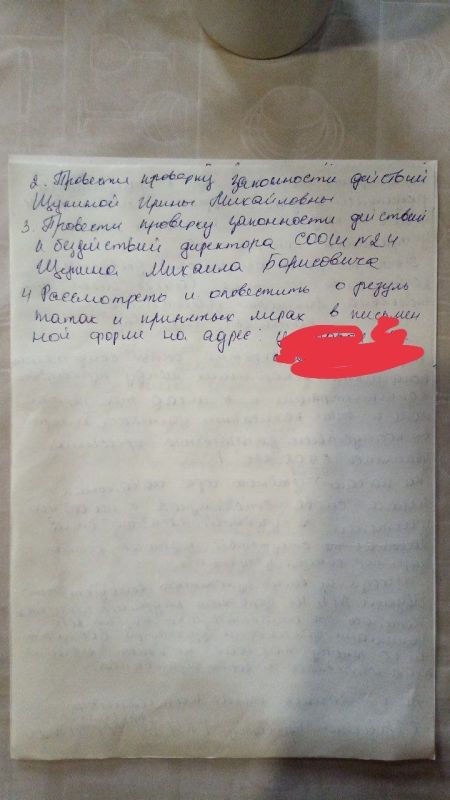 2. Провести проверку законности действий
Щукиной Ирины Михайловны
3. Провести проверку законности действий
и бездействий директора СООШ №24
Щукина Михаила Борисовича
4 Рассмотреть и оповестить о резуль
татах и принятых мерах в письмен
ной форме на адрес: